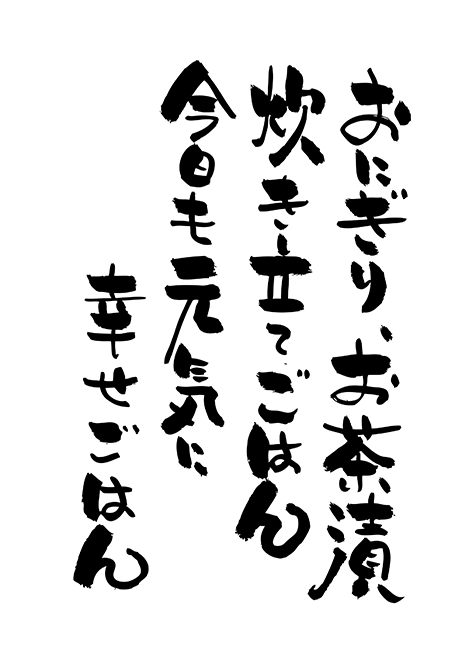 おにぎり、お茶漬
炊き立てごはん
今日も元気に
幸せごはん